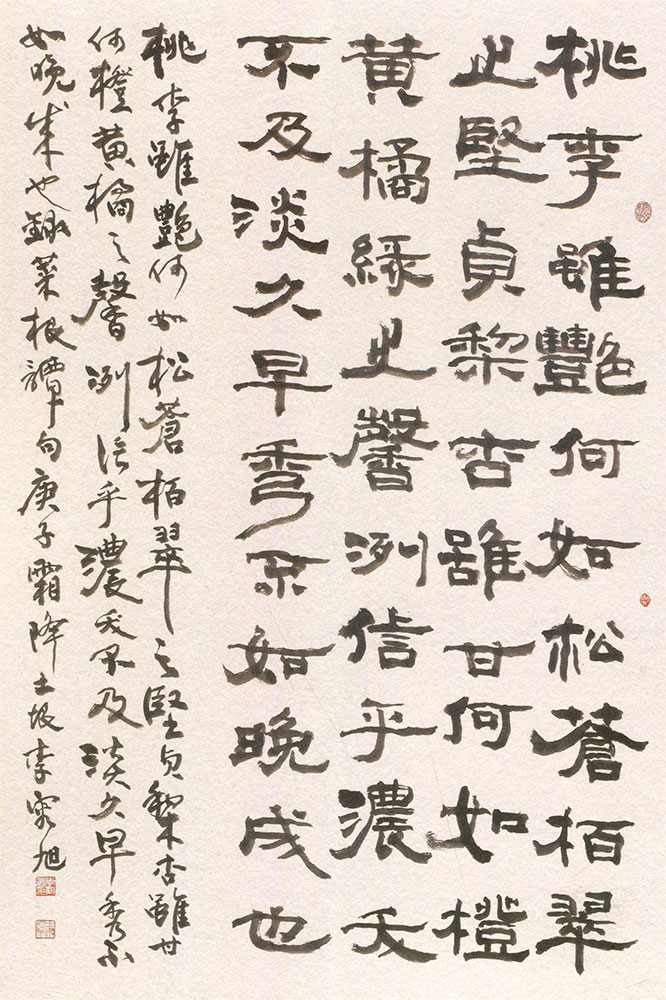 桃李雖艷何如松蒼栢翠
之堅貞棃杏雖甘何如橙
黄橘緑之馨洌信乎濃夭
不及淡久早秀不如晚成也
桃李雖艷何如松蒼栢翠之堅貞棃杏雖甘
何橙黄橘之馨洌信乎濃夭不及淡久早秀不
如晚成也録菜根譚句庚子霜降土坡李旭